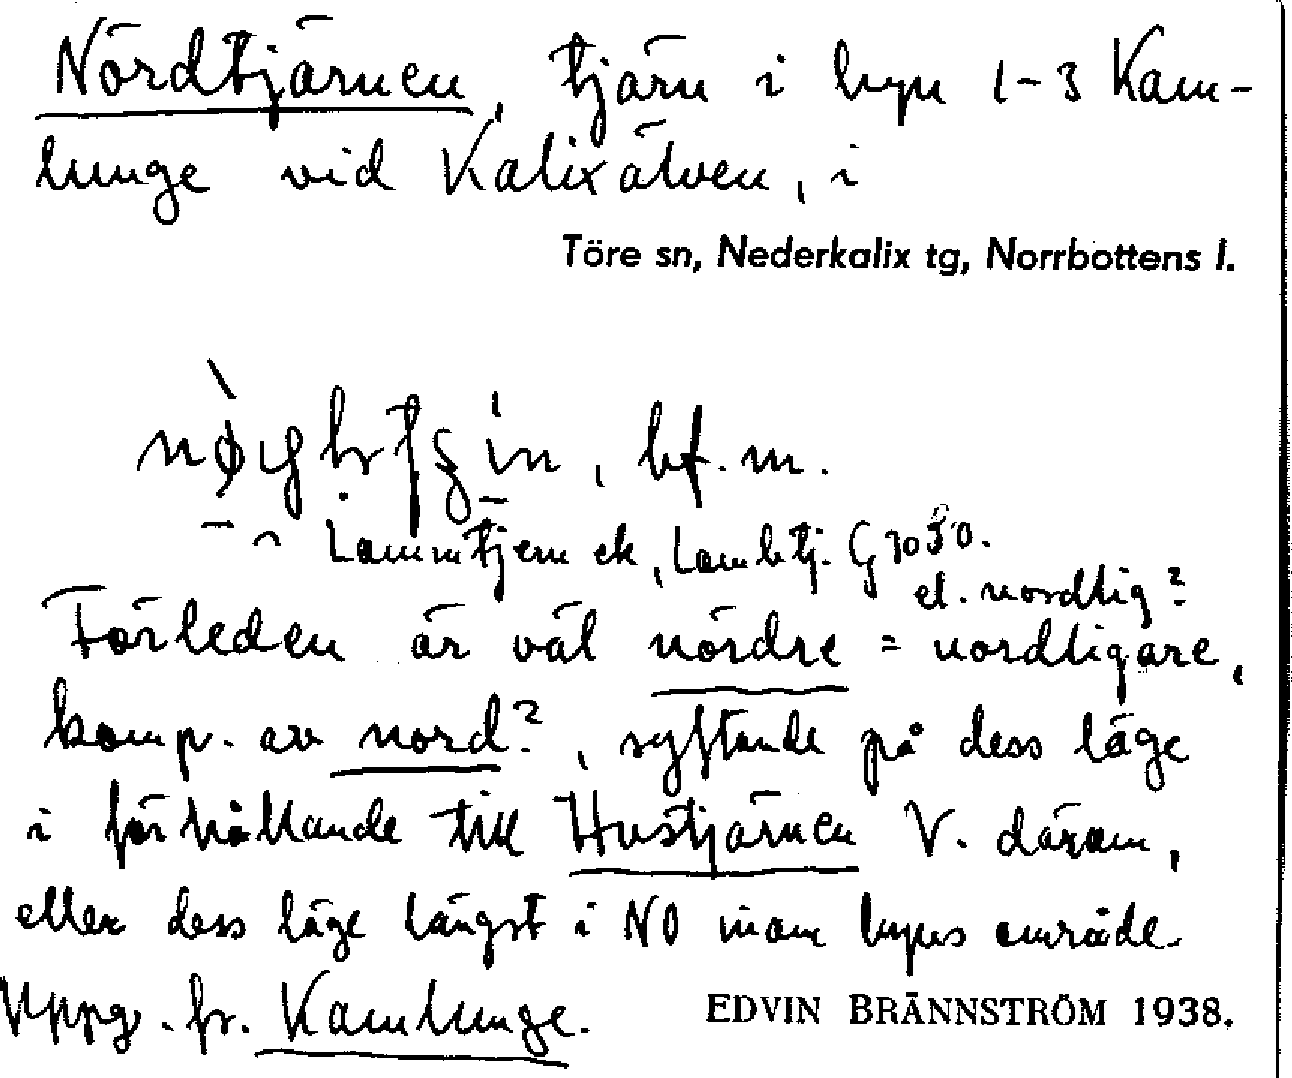 Nördtjärnen, tjärn i byn 1-3 Kam-
lunge vid Kalixälven, i
Töre sn, Nederkalix tg, Norrbottens l.
bf. m.
Lammtjern ek, Lambtj. G 1050.
el. nordlig?
Förleden är väl nördre = nordligare,
komp. av nord?, syftande på dess läge
i förhållande till Hustjärnen V. därom,
eller dess läge längst i NO inom byns område.
Uppg. fr. Kamlunge. EDVIN BRÄNNSTRÖM 1938.